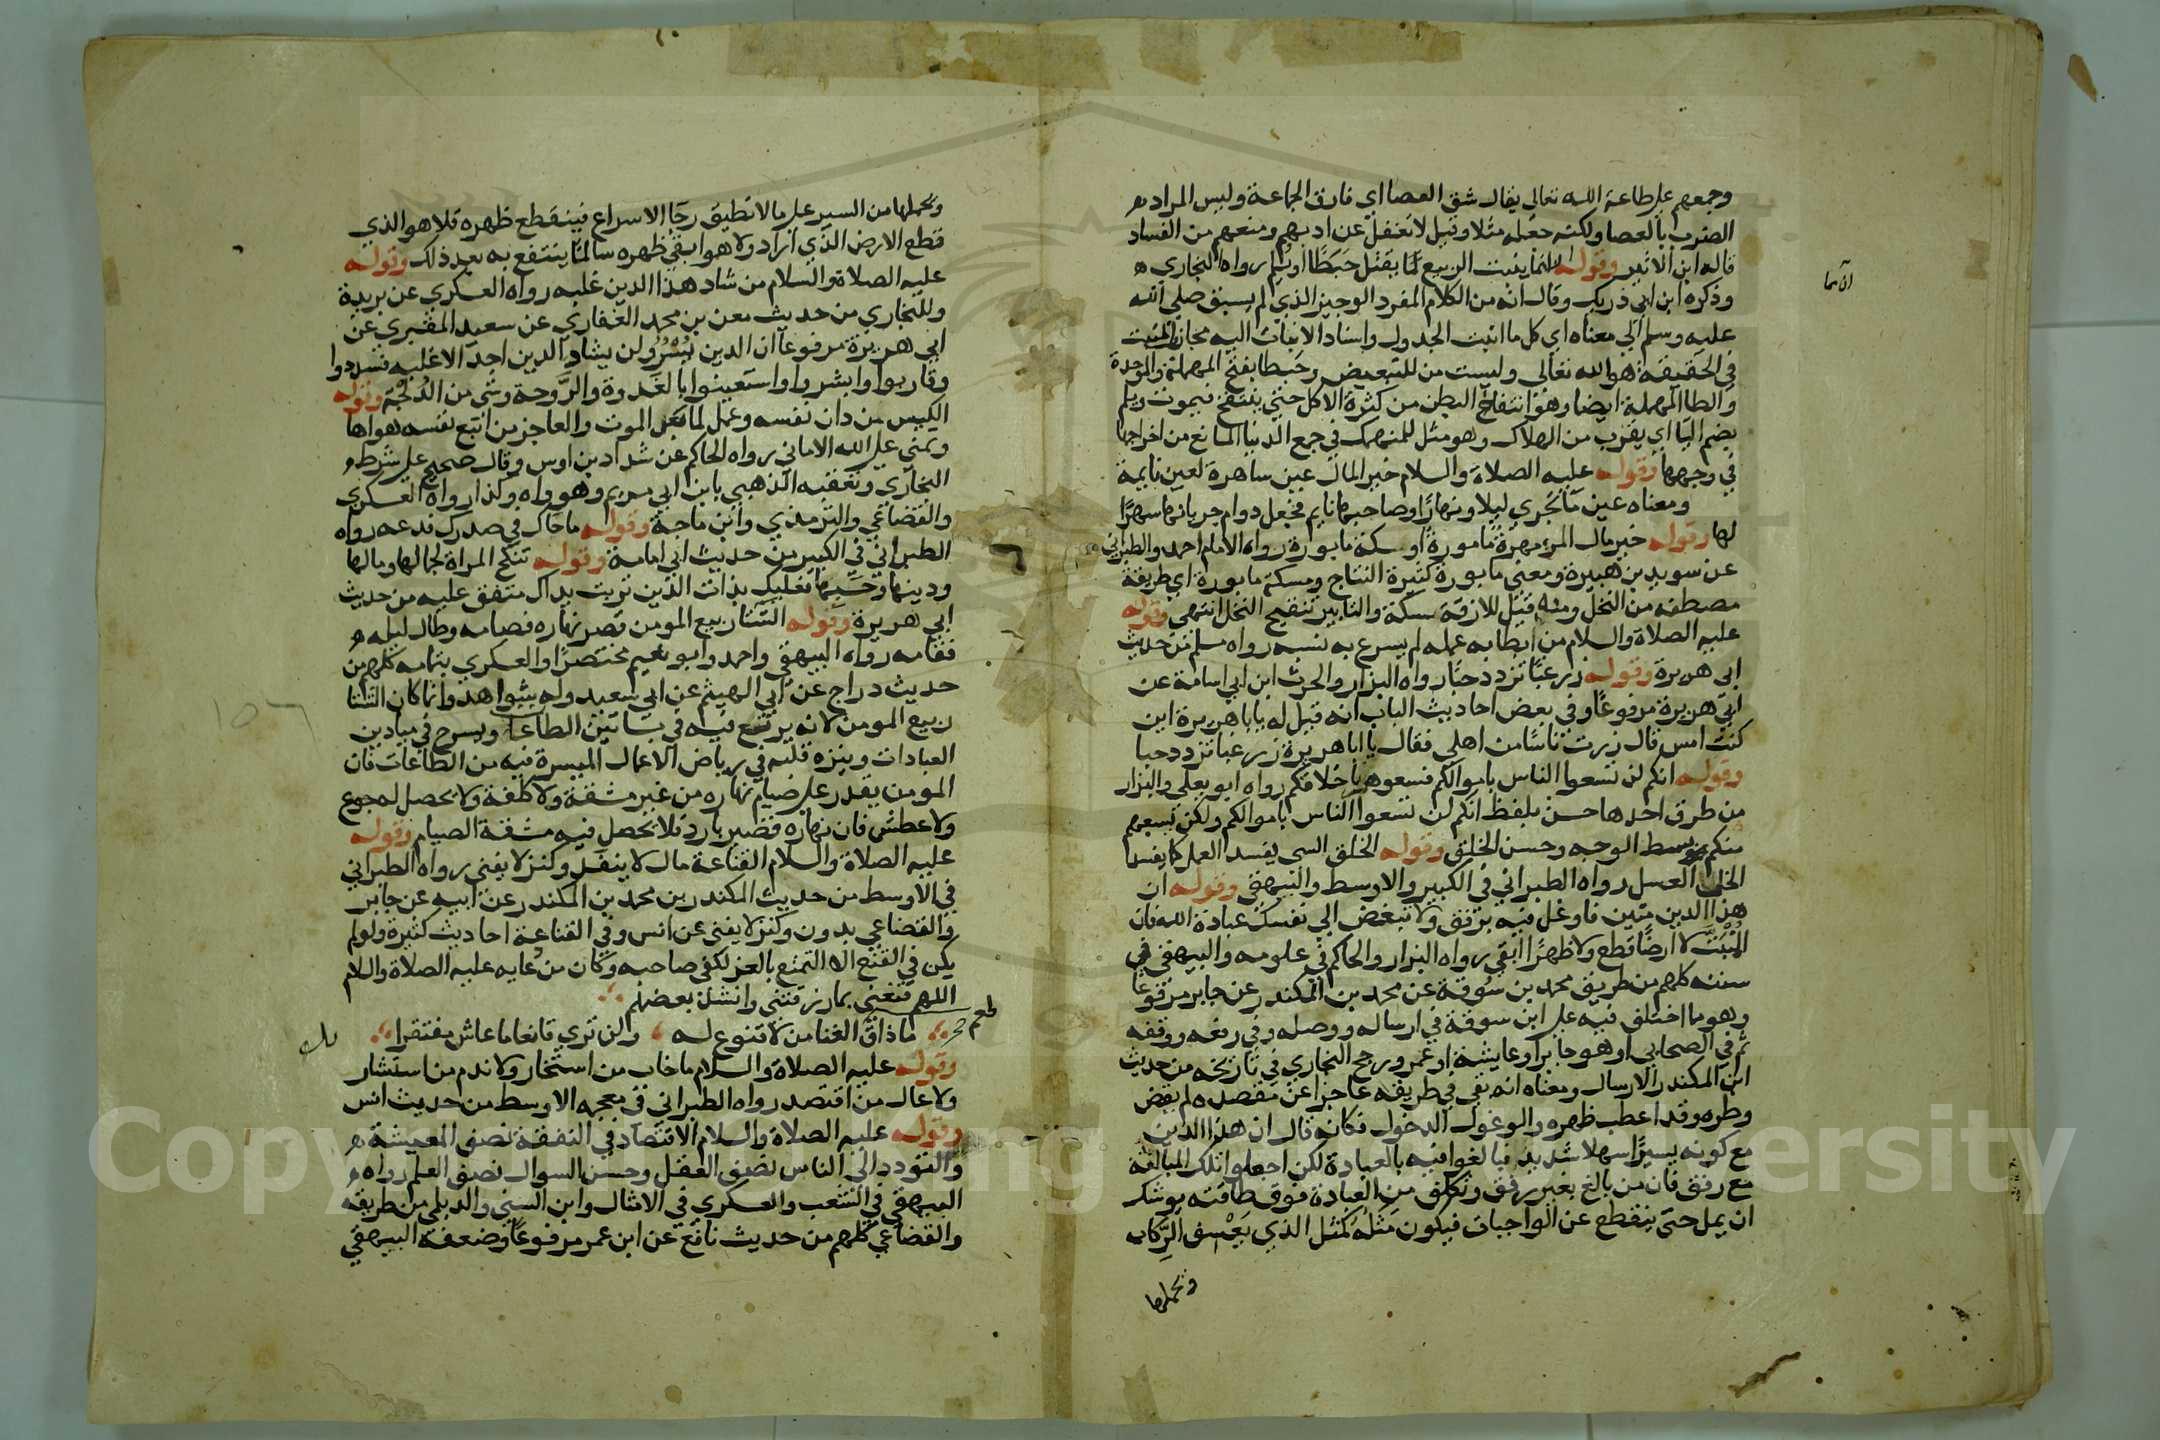 وجمعهم على طاعة الله تعالى يقال شق العصا اي فارق الجماعة وليس المراد
الضرب بالعصا ولكنه جعله مثلا وقيل لا تغفل عن ادبهم ومنعهم من الفساد
قاله ابن الاثير وقوله ان مما ينبت الربيع لما يقتل حبطا او يلم رواه البخاري
وذكره ابن ابي دريك وقال انه من الكلام المفرد الوجيز الذي لم يسبق صلى الله
عليه وسلم الي معناه اي كل ما انبت الجدول واسناد الانبات اليه مجاز والمنبت
في الحقيقة هو الله تعالى وليست من للتبعيض وحبطا بفتح المهملة والموحدة
والطا المهملة ايضا وهو انتفاخ البطن من كثرة الاكل حتى ينتفخ فيموت ويلم
بضم اليا اي يقرب من الهلاك وهو مثل للمنهمك في جمع الدنيا المانع من اخراجها
في وجهها وقوله عليه الصلاة والسلام خير المال عين ساهرة لعين نايمة
ومعناه عين ما تجري ليلا ونهارا وصاحبها نايم فجعل دوام جريانها سهرا
لها وقوله خير مال المرء مهرة مامورة او سكة مابورة رواه الامام احمد والطبراني
عن سويد بن هبيرة ومعنى مامورة كثيرة النتاج وسكة مابورة اي طريقة
مصطفة من النخل ومنه قيل للازقة سكة والتابير تنقيح النخل انتهى وقوله
عليه الصلاة والسلام من ابطا به عمله لم يسرع به نسبه رواه مسلم من حديث
ابي هريرة وقوله زر غبا تزدد حبا رواه البزار والحرث ابن ابي اسامة عن
ابي هريرة مرفوعا وفي بعض احاديث الباب انه قيل له يا ابا هريرة اين
كنت امس قال زرت ناسا من اهلي فقال يا ابا هريرة زر غبا تزدد حبا
وقوله انكم لن تسعوا الناس باموالكم فسعوهم باخلاقكم رواه ابو يعلى والبزار
من طرق احدها حسن بلفظ انكم لن تسعوا الناس باموالكم ولكن يسعهم
منكم بسط الوجه وحسن الخلق وقوله الخلق السي يفسد العمل كما يفسد
الخل العسل رواه الطبراني في الكبير والاوسط والبيهقي وقوله ان
هذا الدين متين فاوغل فيه برفق ولا تبغض الي نفسك عبادة الله فان
المنبت لا ارضا قطع ولا ظهرا ابقى رواه البزار والحاكم في علومه والبيهقي في
سننه كلهم من طريق محمد بن سوقة عن محمد بن المكندر عن جابر مرفوعا
وهو مما اختلف فيه على ابن سوقة في ارساله ووصله وفي رفعه ووقفه
ثم في الصحابي اهو جابر او عايشة او عمر ورجح البخاري في تاريخه من حديث
ابن المكندر الارسال ومعناه انه بقي في طريقه عاجزا عن مقصده لم يقض
وطره وقد اعطب ظهره والوغول الدخول فكانه قال ان هذا الدين
مع كونه يسيرا سهلا شديد فبالغوا فيه بالعبادة لكن اجعلوا تلك المبالغة
مع رفق فان من بالغ بغير رفق وتكلف من العبادة فوق طاقته يوشك
ان يمل حتى ينقطع عن الواجبات فيكون مثله كمثل الذي يعسف الركاب
ويحملها
ويحملها من السير على ما لا تطيق رجا الاسراع فينقطع ظهره فلا هو الذي
قطع الارض الذي اراد ولا هو ابقى ظهره سالما ينتفع به بعد ذلك وقوله
عليه الصلاة والسلام من شاد هذا الدين غلبه رواه العسكري عن بريدة
وللبخاري من حديث معن بن محمد الغفاري عن سعيد المقبري عن
ابي هريرة مرفوعا ان الدين يسر ولن يشاد الدين احد الا غلبه فسددوا
وقاربوا وابشروا واستعينوا بالغدوة والروحة وشي من الدلجة وقوله
الكيس من دان نفسه وعمل لما بعد الموت والعاجز من اتبع نفسه هواها
وتمنى على الله الاماني رواه الحاكم عن شداد بن اوس وقال صحيح على شرط
البخاري وتعقبه الذهبي بابن ابي مريم وهو واه وكذا رواه العسكري
والقضاعي والترمذي وابن ماجة وقوله ما حاك في صدرك فدعه رواه
الطبراني في الكبير من حديث ابي امامة وقوله تنكح المراة لجمالها ومالها
ودينها وحسبها فعليك بذات الدين تربت يداك متفق عليه من حديث
ابي هريرة وقوله الشتا ربيع المومن قصر نهاره فصامه وطال ليله
فقامه رواه البيهقي واحمد وابو نعيم مختصرا والعسكري بتمامه كلهم من
حديث دراج عن ابي الهيثم عن ابي سعيد وله شواهد وانما كان الشتا
ربيع المومن لانه يرتع فيه في بساتين الطاعات ويسرح في ميادين
العبادات وينزه قلبه في رياض الاعمال الميسرة فيه من الطاعات فان
المومن يقدر على صيام نهاره من غير مشقة ولا كلفة ولا يحصل له جوع
ولا عطش فان نهاره قصير بارد فلا يحصل فيه مشقة الصيام وقوله
عليه الصلاة والسلام القناعة مال لا ينفد وكنز لا يفنى رواه الطبراني
في الاوسط من حديث المكندر بن محمد بن المكندر عن ابيه عن جابر
والقضاعي بدون وكنز لا يفنى عن انس وفي القناعة احاديث كثيرة ولو لم
يكن في القنع الا التمتع بالعز لكفى صاحبه وكان من دعايه عليه الصلاة والسلام
اللهم قنعني بما رزقتني وانشد بعضهم
ما ذاق الغنا من لا قنوع له ولن ترى قانعا ما عاش مفتقرا
طعم
وقوله عليه الصلاة والسلام ما خاب من استخار ولا ندم من استشار
ولا عال من اقتصد رواه الطبراني في معجمه الاوسط من حديث انس
وقوله عليه الصلاة والسلام الاقتصاد في النفقة نصف المعيشة
والتودد الى الناس نصف العقل وحسن السوال نصف العلم رواه
البيهقي في الشعب والعسكري في الامثال وابن السني والديلمي من طريقه
والقضاعي كلهم من حديث نافع عن ابن عمر مرفوعا وضعفه البيهقي
Copy ng ersity